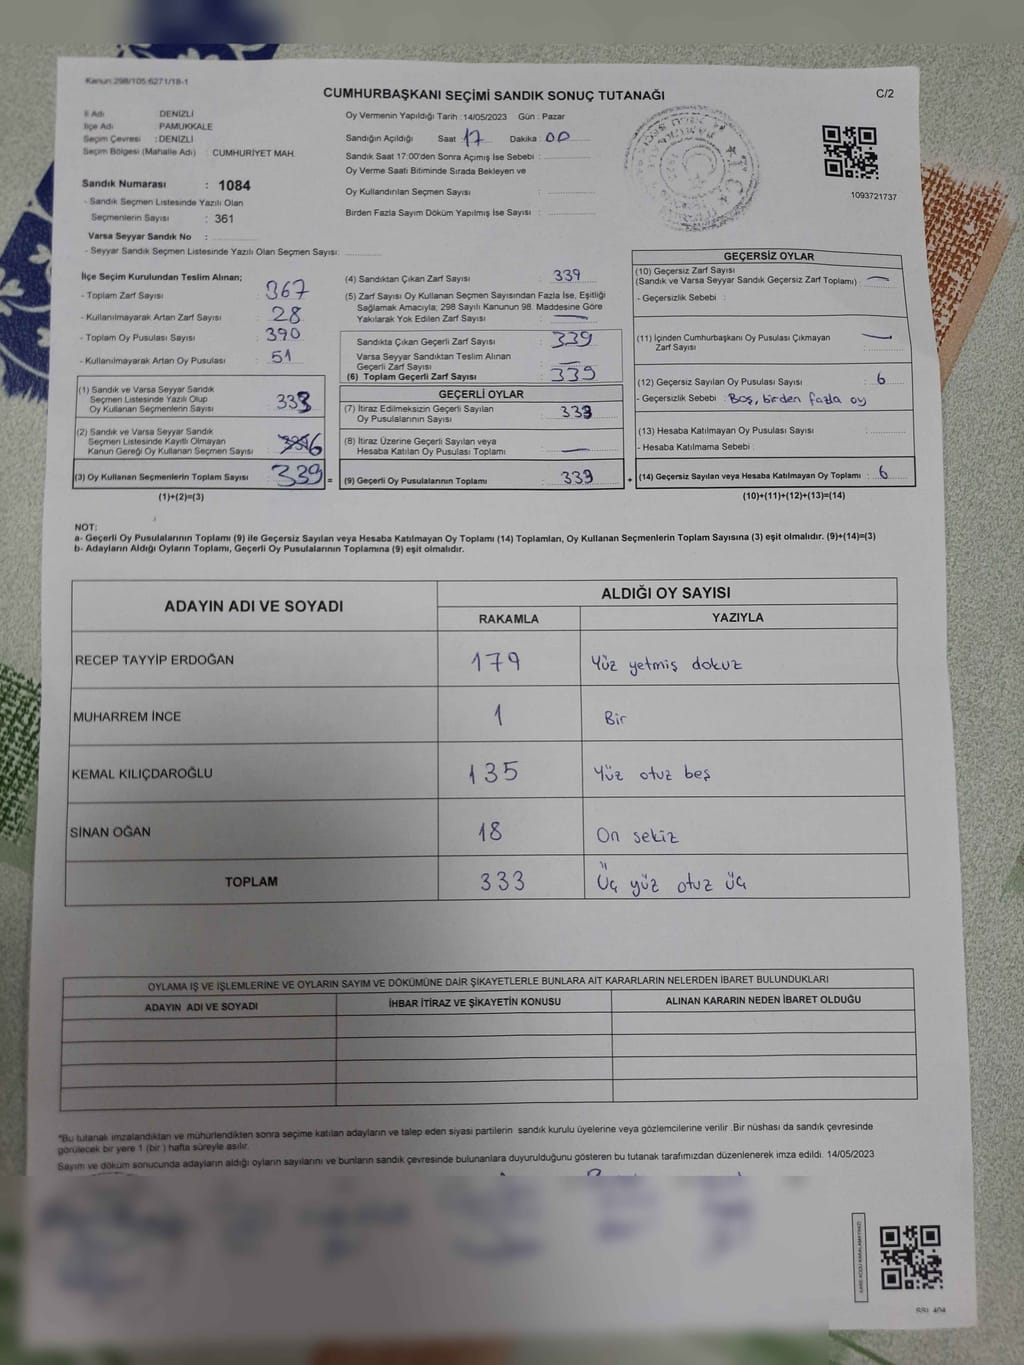 Kanun:298/105;6271/18-1
CUMHURBAŞKANI SEÇİMİ SANDIK SONUÇ TUTANAĞI
C/2
İl Adı DENİZLİ
İlçe Adı PAMUKKALE
Seçim Çevresi : DENİZLİ
Seçim Bölgesi (Mahalle Adı) CUMHURİYET MAH.
Sandık Numarası : 1084
- Sandık Seçmen Listesinde Yazılı Olan
Seçmenlerin Sayısı : 361
Varsa Seyyar Sandık No :
- Seyyar Sandık Seçmen Listesinde Yazılı Olan Seçmen Sayısı:
Oy Vermenin Yapıldığı Tarih : 14/05/2023 Gün : Pazar
Sandığın Açıldığı Saat 17 Dakika : 00
Sandık Saat 17:00'den Sonra Açımış İse Sebebi :
Oy Verme Saati Bitiminde Sırada Bekleyen ve
Oy Kullandırılan Seçmen Sayısı :
Birden Fazla Sayım Döküm Yapılmış İse Sayısı :
1093721737
İlçe Seçim Kurulundan Teslim Alınan;
- Toplam Zarf Sayısı : 367
- Kullanılmayarak Artan Zarf Sayısı : 28
- Toplam Oy Pusulası Sayısı : 390
- Kullanılmayarak Artan Oy Pusulası : 51
(1) Sandık ve Varsa Seyyar Sandık
Seçmen Listesinde Yazılı Olup
Oy Kullanan Seçmenlerin Sayısı : 333
(2) Sandık ve Varsa Seyyar Sandık
Seçmen Listesinde Kayıtlı Olmayan
Kanun Gereği Oy Kullanan Seçmen Sayısı : 6
(3) Oy Kullanan Seçmenlerin Toplam Sayısı : 339 =
(1)+(2)=(3)
(4) Sandıktan Çıkan Zarf Sayısı : 339
(5) Zarf Sayısı Oy Kullanan Seçmen Sayısından Fazla İse, Eşitliği
Sağlamak Amacıyla; 298 Sayılı Kanunun 98. Maddesine Göre
Yakılarak Yok Edilen Zarf Sayısı : —
Sandıkta Çıkan Geçerli Zarf Sayısı : 339
Varsa Seyyar Sandıktan Teslim Alınan
Geçerli Zarf Sayısı : —
(6) Toplam Geçerli Zarf Sayısı : 339
GEÇERLİ OYLAR
(7) İtiraz Edilmeksizin Geçerli Sayılan
Oy Pusulalarının Sayısı : 333
(8) İtiraz Üzerine Geçerli Sayılan veya
Hesaba Katılan Oy Pusulası Toplamı : —
(9) Geçerli Oy Pusulalarının Toplamı : 333 +
GEÇERSİZ OYLAR
(10) Geçersiz Zarf Sayısı
(Sandık ve Varsa Seyyar Sandık Geçersiz Zarf Toplamı) : —
- Geçersizlik Sebebi :
(11) İçinden Cumhurbaşkanı Oy Pusulası Çıkmayan : —
Zarf Sayısı
(12) Geçersiz Sayılan Oy Pusulası Sayısı : 6
- Geçersizlik Sebebi : Boş, birden fazla oy
(13) Hesaba Katılmayan Oy Pusulası Sayısı :
- Hesaba Katılmama Sebebi :
(14) Geçersiz Sayılan veya Hesaba Katılmayan Oy Toplamı : 6
(10)+(11)+(12)+(13)=(14)
NOT:
a- Geçerli Oy Pusulalarının Toplamı (9) ile Geçersiz Sayılan veya Hesaba Katılmayan Oy Toplamı (14) Toplamları, Oy Kullanan Seçmenlerin Toplam Sayısına (3) eşit olmalıdır. (9)+(14)=(3)
b- Adayların Aldığı Oyların Toplamı, Geçerli Oy Pusulalarının Toplamına (9) eşit olmalıdır.
ADAYIN ADI VE SOYADI ALDIĞI OY SAYISI
RAKAMLA YAZIYLA
RECEP TAYYİP ERDOĞAN 179 Yüz yetmiş dokuz
MUHARREM İNCE 1 Bir
KEMAL KILIÇDAROĞLU 135 Yüz otuz beş
SİNAN OĞAN 18 On sekiz
TOPLAM 333 Üç yüz otuz üç
OYLAMA İŞ VE İŞLEMLERİNE VE OYLARIN SAYIM VE DÖKÜMÜNE DAİR ŞİKAYETLERLE BUNLARA AİT KARARLARIN NELERDEN İBARET BULUNDUKLARI
ADAYIN ADI VE SOYADI İHBAR İTİRAZ VE ŞİKAYETİN KONUSU ALINAN KARARIN NEDEN İBARET OLDUĞU
*Bu tutanak imzalandıktan ve mühürlendikten sonra seçime katılan adayların ve talep eden siyasi partilerin sandık kurulu üyelerine veya gözlemcilerine verilir. Bir nüshası da sandık çevresinde
görülecek bir yere 1 (bir) hafta süreyle asılır.
Sayım ve döküm sonucunda adayların aldığı oyların sayılarını ve bunların sandık çevresinde bulunanlara duyurulduğunu gösteren bu tutanak tarafımızdan düzenlenerek imza edildi. 14/05/2023